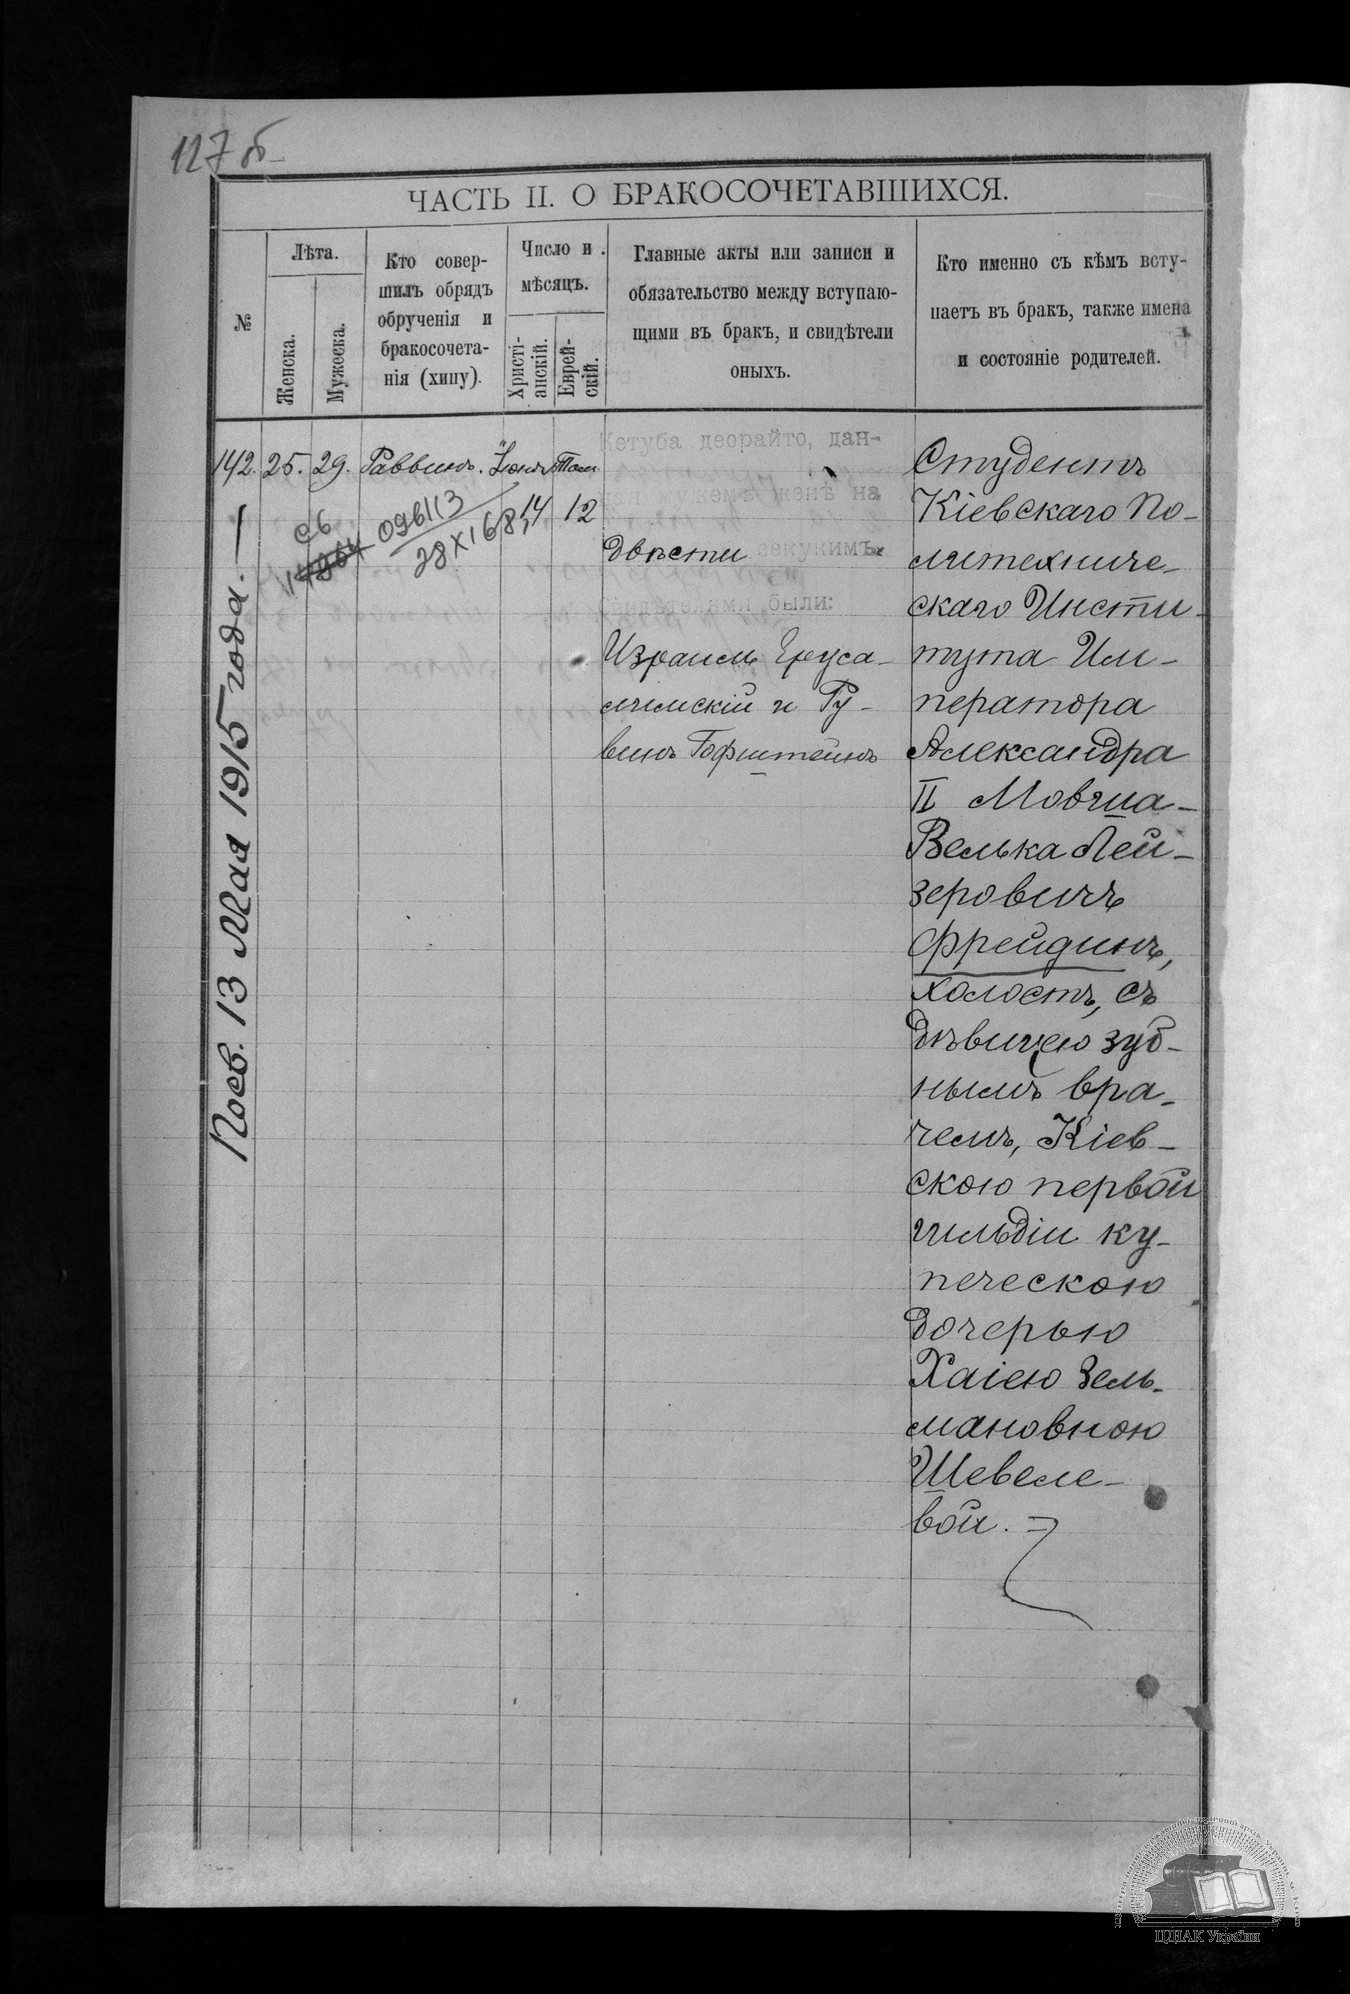 127 об
ЧАСТЬ II. О БРАКОСОЧЕТАВШИХСЯ.
№
Лѣта.
Женска.
Мужеска.
Кто совер-
шилъ обрядъ
обрученія и
бракосочета-
нія (хипу).
Число и
мѣсяцъ.
Христі-
анскій.
Еврей-
скій.
Главные акты или записи и
обязательство между вступаю-
щими въ бракъ, и свидѣтели
оныхъ.
Кто именно съ кѣмъ всту-
паетъ въ бракъ, также имена
и состояніе родителей.
142. 25. 29. Раввинъ. Іюня
14 12
Сб
096113
28 XI 68
Кетуба деорайто, дан-
ная мужемъ женѣ на
двѣсти зекукимъ
Свидѣтелами были:
Израиль Еруса-
лимскій и Ру-
винъ Гофштейнъ
Студентъ
Кіевскаго По-
литехниче-
скаго Инсти-
тута Им-
ператора
Александра
II Мовша-
Велька Лей-
зеровичъ
Фрейдинъ,
холостъ, съ
дѣвицею зуб-
нымъ вра-
чемъ, Кіев-
скою первой
гильдіи ку-
печескою
дочерью
Хаіею Зель-
мановною
Шевеле-
вой.
13 Мая 1915 года.
ЦДІАК України